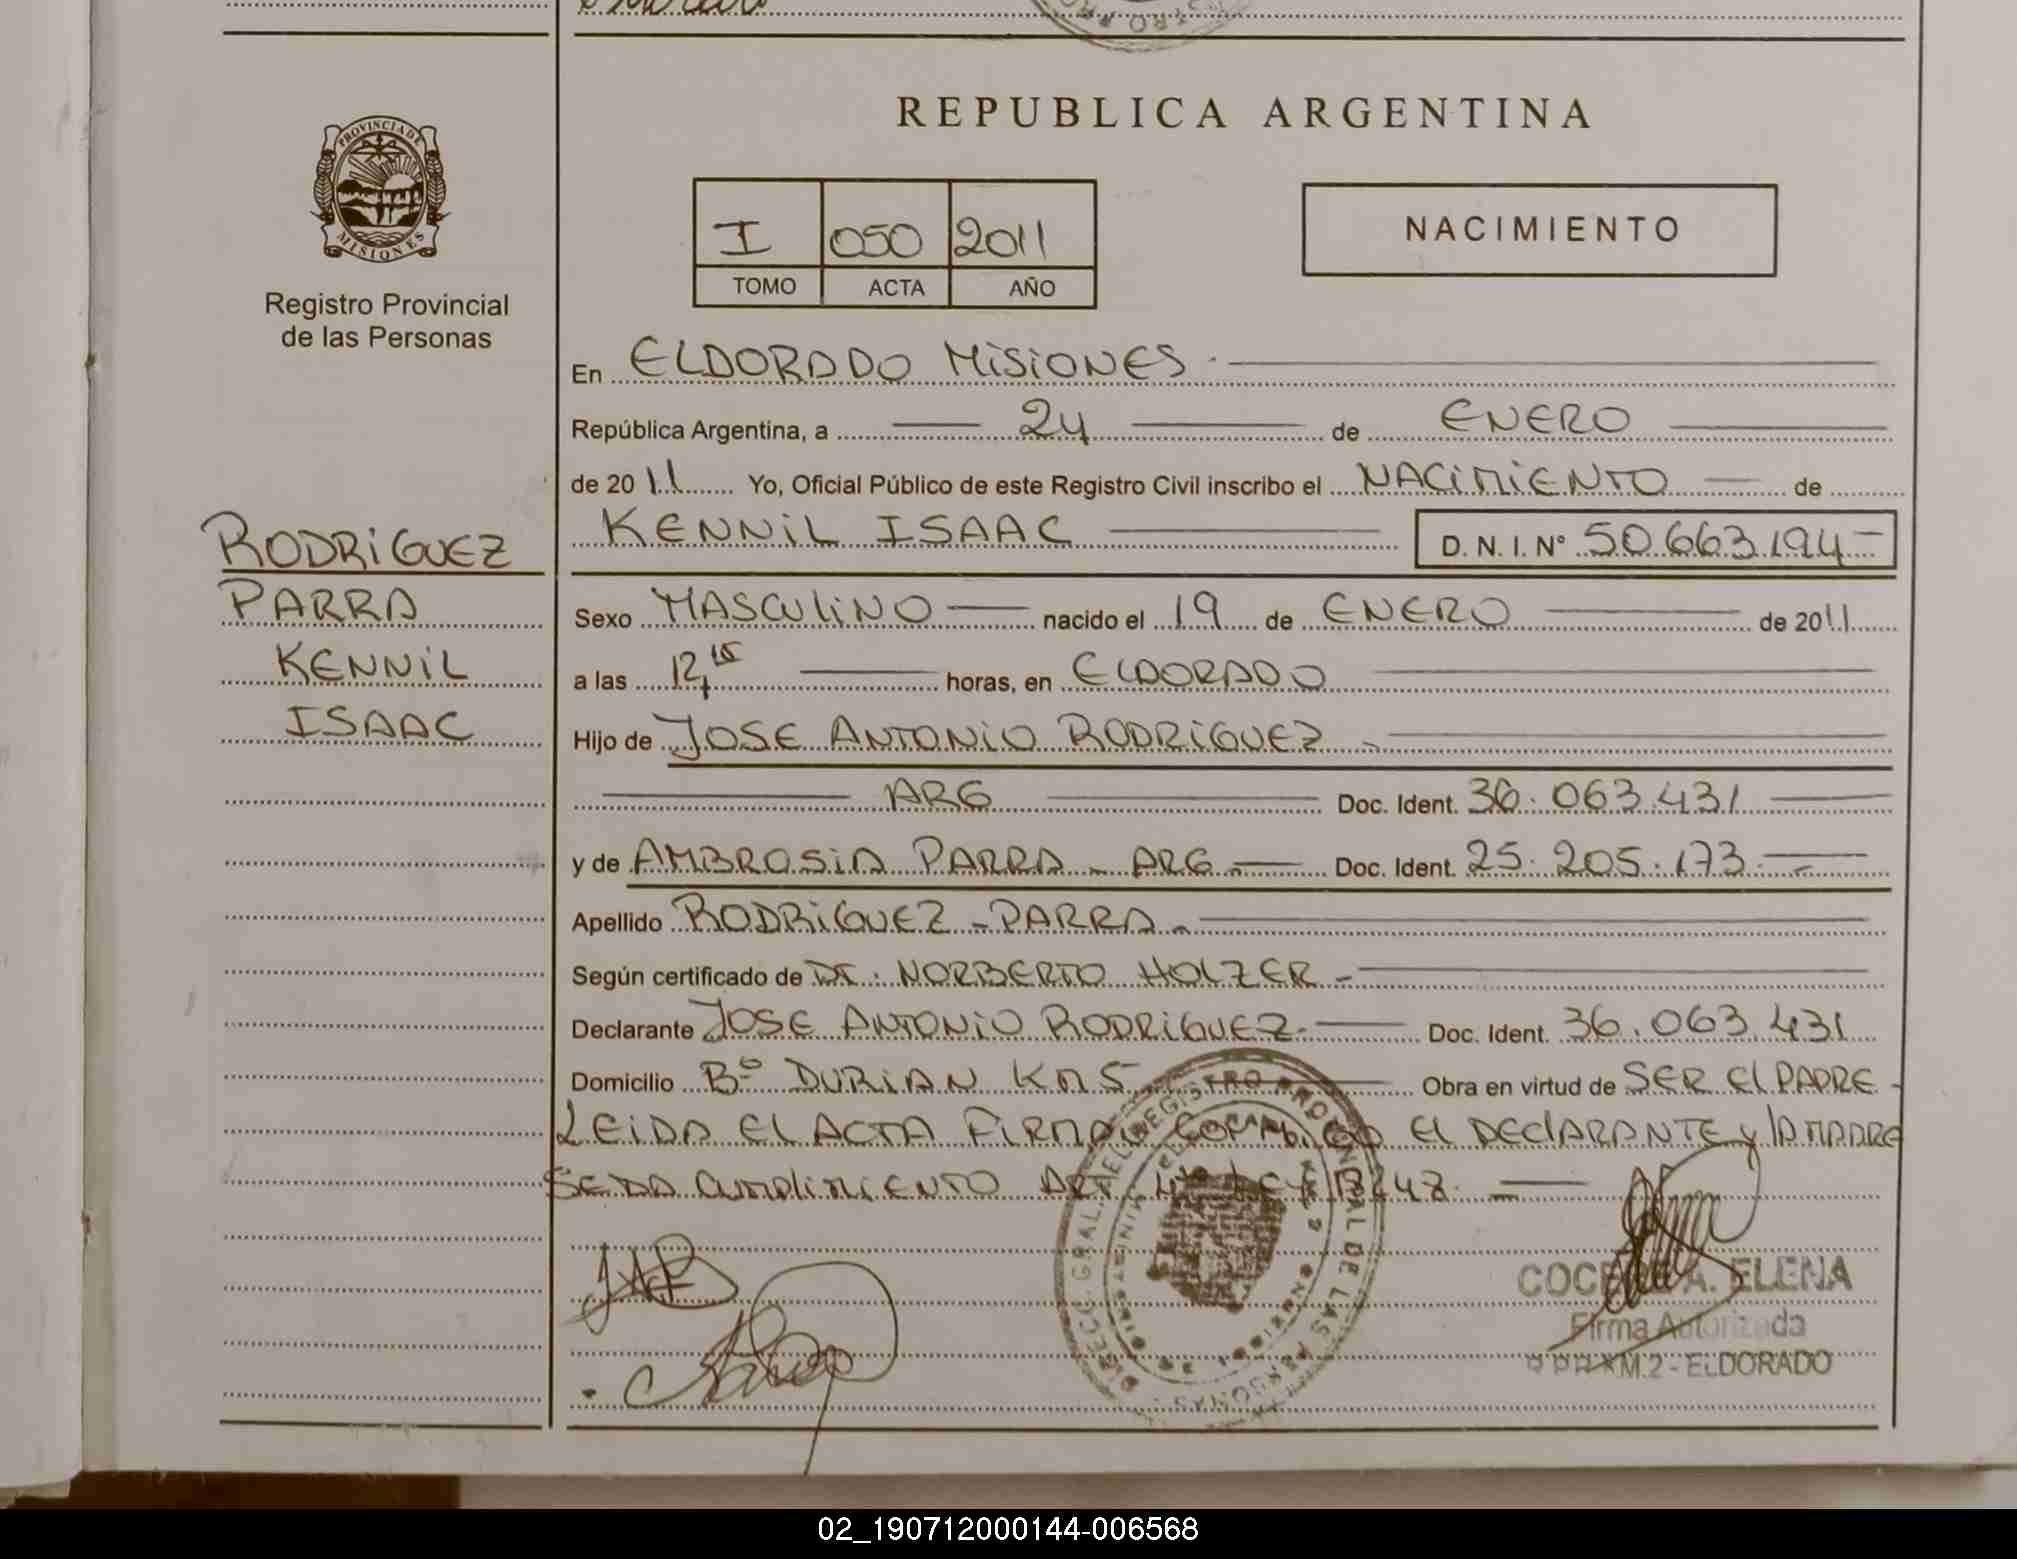 REPUBLICA ARGENTINA
PROVINCIA DE
MISIONES
Registro Provincial
de las Personas
I 050 2011
TOMO ACTA AÑO
NACIMIENTO
En ELDORADO MISIONES
República Argentina, a 24 de ENERO
de 2011 Yo, Oficial Público de este Registro Civil inscribo el NACIMIENTO de
KENNIL ISAAC D. N. I. Nº 50.663.194
RODRIGUEZ
PARRA
KENNIL
ISAAC
Sexo MASCULINO nacido el 19 de ENERO de 2011
a las 12 15 horas, en ELDORADO
Hijo de JOSE ANTONIO RODRIGUEZ
ARG Doc. Ident. 36.063.431
y de AMBROSIA PARRA - ARG Doc. Ident. 25.205.173
Apellido RODRIGUEZ - PARRA
Según certificado de DR. NORBERTO HOLZER
Declarante JOSE ANTONIO RODRIGUEZ Doc. Ident. 36.063.431
Domicilio Bº DURIAN KM 5 Obra en virtud de SER EL PADRE
LEIDA EL ACTA FIRMAN CONMIGO EL DECLARANTE Y LA MADRE
SE DA CUMPLIMIENTO ART 4º LEY
REGISTRO PROVINCIAL DE LAS PERSONAS
A. ELENA
Firma Autorizada
M.2 - ELDORADO
02_190712000144-006568